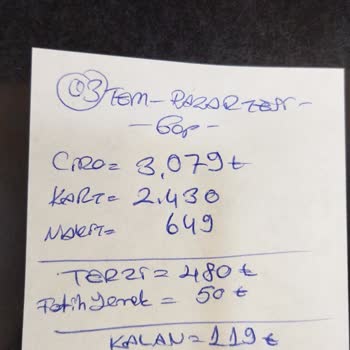 03 TEM - PAZARTESİ -
- Gop -
CİRO = 3.079 ₺
KART = 2.430
NAKİT = 649
TERZİ = 480 ₺
Fatih yemek = 50 ₺
KALAN = 119 ₺